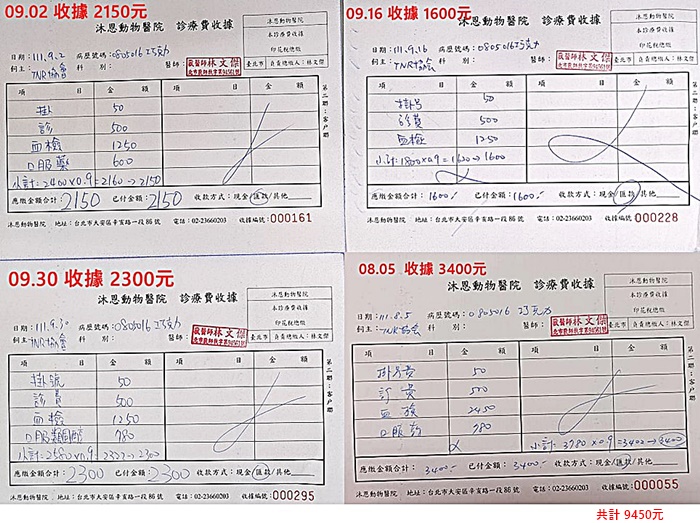 09.02 收據 2150元
沐恩動物醫院 診療費收據
沐恩動物醫院
本診療費收據
印花稅總繳
臺北市 負責總繳人：林文傑
日期：111.9.2 病歷號碼：0805016 巧克力
飼主：TNR協會 科 別： 醫師：
獸醫師林文傑
項 目 金 額 項 目 金 額
掛 50
診 500
血檢 1250
口服藥 600
小計=2400×0.9=2160→2150
應繳金額合計：2150 已付金額：2150 收款方式：現金/匯款/其他
沐恩動物醫院 地址：台北市大安區辛亥路一段86號 電話：02-23660203 收據編號：000161
第二聯：客戶聯
09.16 收據 1600元
沐恩動物醫院 診療費收據
沐恩動物醫院
本診療費收據
印花稅總繳
臺北市 負責總繳人：林文傑
日期：111.9.16 病歷號碼：0805016巧克力
飼主：TNR協會 科 別： 醫師：
獸醫師林文傑
項 目 金 額 項 目 金 額
掛号 50
診費 500
血檢 1250
小計=1800×0.9=1620→1600
應繳金額合計：1600 已付金額：1600 收款方式：現金/匯款/其他
沐恩動物醫院 地址：台北市大安區辛亥路一段86號 電話：02-23660203 收據編號：000228
第二聯：客戶聯
09.30 收據 2300元
沐恩動物醫院 診療費收據
沐恩動物醫院
本診療費收據
印花稅總繳
臺北市 負責總繳人：林文傑
日期：111.9.30 病歷號碼：0805016 巧克力
飼主：TNR協會 科 別： 醫師：
獸醫師林文傑
項 目 金 額 項 目 金 額
掛號 50
診費 500
血檢 1250
口服類固醇 780
小計=2580×0.9=2322→2300
應繳金額合計：2300 已付金額：2300 收款方式：現金/匯款/其他
沐恩動物醫院 地址：台北市大安區辛亥路一段86號 電話：02-23660203 收據編號：000295
第二聯：客戶聯
08.05 收據 3400元
沐恩動物醫院 診療費收據
沐恩動物醫院
本診療費收據
印花稅總繳
臺北市 負責總繳人：林文傑
日期：111.8.5 病歷號碼：0805016 巧克力
飼主：TNR協會 科 別： 醫師：
獸醫師林文傑
項 目 金 額 項 目 金 額
掛号費 50
診費 500
血檢 2450
口服藥 780
小計=3780×0.9=3402→3400
應繳金額合計：3400 已付金額：3400 收款方式：現金/匯款/其他
沐恩動物醫院 地址：台北市大安區辛亥路一段86號 電話：02-23660203 收據編號：000055
第二聯：客戶聯
共計 9450元